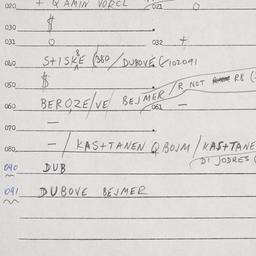 020 + Q AMIN VORCL 021 O
030 $
031 O 032 +
040 S+ISKE (380/DUBOVE (102091
050 $ /R NOT RB (
060 BEROZE/VE BEJMER 061 —
070 —
080 - / KAS+TANEN Q BOJM / KAS+TANE
DI JODRES (
090 DUB
091 DUBOVE BEJMER